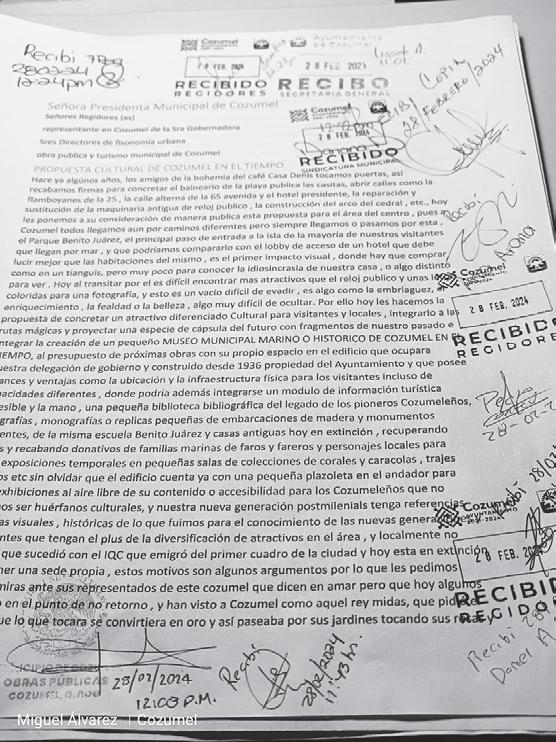 Recibi
28/02/24
12:24pm
Cozumel
Ayuntamiento
de Cozumel
FEB. 2024
28 FEB 2024
11:01
RECIBIDO
REGIDORES
RECIBO
SECRETARIA GENERAL
Recibi Copia
28 FEBRERO 2024
Señora Presidenta Municipal de Cozumel
Señores Regidores (as)
representante en Cozumel de la Sra Gobernadora
Sres Directores de fisonomía urbana
obra publica y turismo municipal de Cozumel
Cozumel
FEB. 2024
RECIBIDO
SINDICATURA MUNICIPAL
PROPUESTA CULTURAL DE COZUMEL EN EL TIEMPO
Hace ya algunos años, los amigos de la bohemia del café Casa Denis tocamos puertas, así
recabamos firmas para concretar el balneario de la playa publica las casitas, abrir calles como la
flamboyanes de la 25 , la calle alterna de la 65 avenida y el hotel presidente, la reparación y
sustitución de la maquinaria antigua de reloj publico , la construcción del arco del cedral , etc., hoy
les ponemos a su consideración de manera publica esta propuesta para el área del centro , pues
Cozumel todos llegamos aun por caminos diferentes pero siempre llegamos o pasamos por esta ,
el Parque Benito Juárez, el principal paso de entrada a la isla de la mayoría de nuestros visitantes
que llegan por mar , y que podríamos compararlo con el lobby de acceso de un hotel que debe
lucir mejor que las habitaciones del mismo , es el primer impacto visual , donde hay que comprar
como en un tianguis, pero muy poco para conocer la idiosincrasia de nuestra casa , o algo distinto
para ver . Hoy al transitar por el es difícil encontrar mas atractivos que el reloj publico y unas
coloridas para una fotografía, y esto es un vacío difícil de evadir , es algo como la embriaguez, el
enriquecimiento , la fealdad o la belleza , algo muy difícil de ocultar. Por ello hoy les hacemos la
propuesta de concretar un atractivo diferenciado Cultural para visitantes y locales , Integrarlo a las
rutas mágicas y proyectar una especie de cápsula del futuro con fragmentos de nuestro pasado e
integrar la creación de un pequeño MUSEO MUNICIPAL MARINO O HISTORICO DE COZUMEL EN
TIEMPO, al presupuesto de próximas obras con su propio espacio en el edificio que ocupara
uestra delegación de gobierno y construido desde 1936 propiedad del Ayuntamiento y que posee
ances y ventajas como la ubicación y la infraestructura física para los visitantes incluso de
acidades diferentes , donde podría además integrarse un modulo de información turística
esible y la mano , una pequeña biblioteca bibliográfica del legado de los pioneros Cozumeleños,
grafías , monografías o replicas pequeñas de embarcaciones de madera y monumentos
entes, de la misma escuela Benito Juárez y casas antiguas hoy en extinción , recuperando
s y recabando donativos de familias marinas de faros y fareros y personajes locales para
exposiciones temporales en pequeñas salas de colecciones de corales y caracolas , trajes
os etc sin olvidar que el edificio cuenta ya con una pequeña plazoleta en el andador para
exhibiciones al aire libre de su contenido o accesibilidad para los Cozumeleños que no
os ser huérfanos culturales, y nuestra nueva generación postmilenials tenga referencias
as visuales , históricas de lo que fuimos para el conocimiento de las nuevas
ntes que tengan el plus de la diversificación de atractivos en el área , y localmente no
que sucedió con el IQC que emigró del primer cuadro de la ciudad y hoy esta en extinción
ner una sede propia , estos motivos son algunos argumentos por lo que les pedimos
miras ante sus representados de este cozumel que dicen en amar pero que hoy algunos
o en el punto de no retorno , y han visto a Cozumel como aquel rey midas, que
ue lo que tocara se convirtiera en oro y así paseaba por sus jardines tocando sus
Cozumel
28 FEB. 2024
RECIBIDO
REGIDORES
Cozumel
AYUNTAMIENTO
28 FEB. 20
RECIBI
REGIDO
Recibi
OBRAS PÚBLICAS
COZUMEL, Q. ROO
28/02/2024
12:03 P.M.
Recibi
28/02/2024
11:43 hr.
Miguel Álvarez | Cozumel